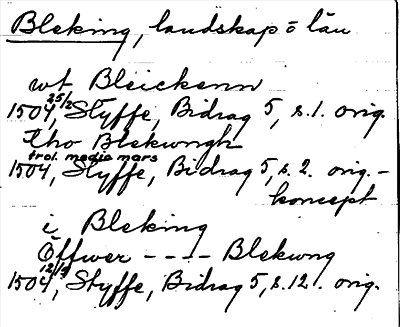 Bleking, landskap o län
wt Bleickenn
1504 25/2, Styffe, Bidrag 5, s. 1. orig.
tho Blekwngh
1504 trol. media mars, Styffe, Bidrag 5, s. 2. orig. -
koncept
i Bleking
Offwer ---- Blekwng
1504 12/9, Styffe, Bidrag 5, s. 12. orig.